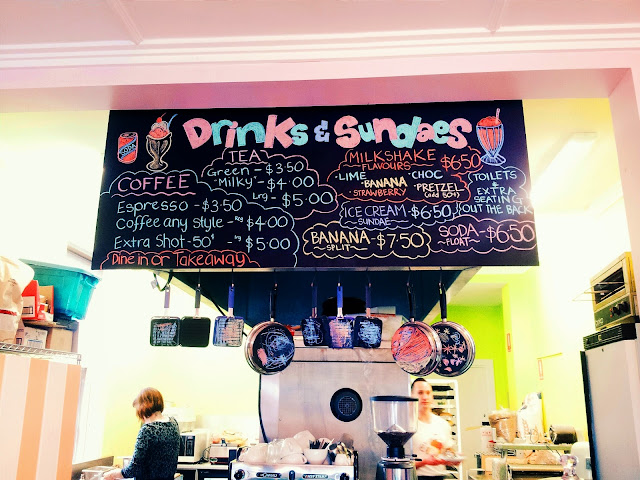 DrinKs & Sundaes
TEA
Green - $3.50
"Milky" - $4.00
Lrg - $5.00
COFFEE
Espresso - $3.50
Coffee any style - Reg $4.00
Extra Shot - 50¢ - Lrg $5.00
Dine in or Takeaway
MILKSHAKE $6.50
FLAVOURS
·LIME ·CHOC
·BANANA
·STRAWBERRY ·PRETZEL
(add 50¢)
ICE CREAM - $6.50
~SUNDAE~
BANANA - $7.50
~SPLIT~
SODA - $6.50
~FLOAT~
TOILETS
+
EXTRA
SEATING
OUT THE BACK
SODA